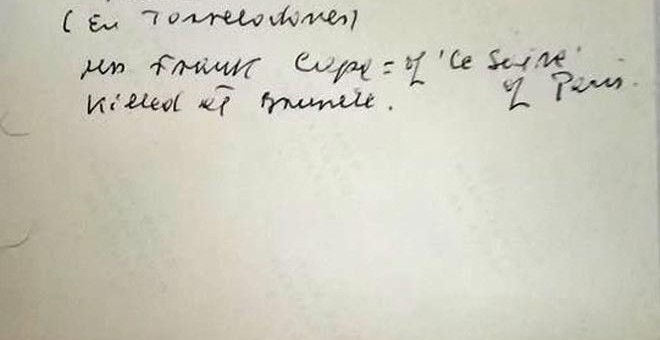 (En Torrelodones)
Mrs Frank Capa = of 'Ce Soir'
of Paris.
Killed at Brunete.